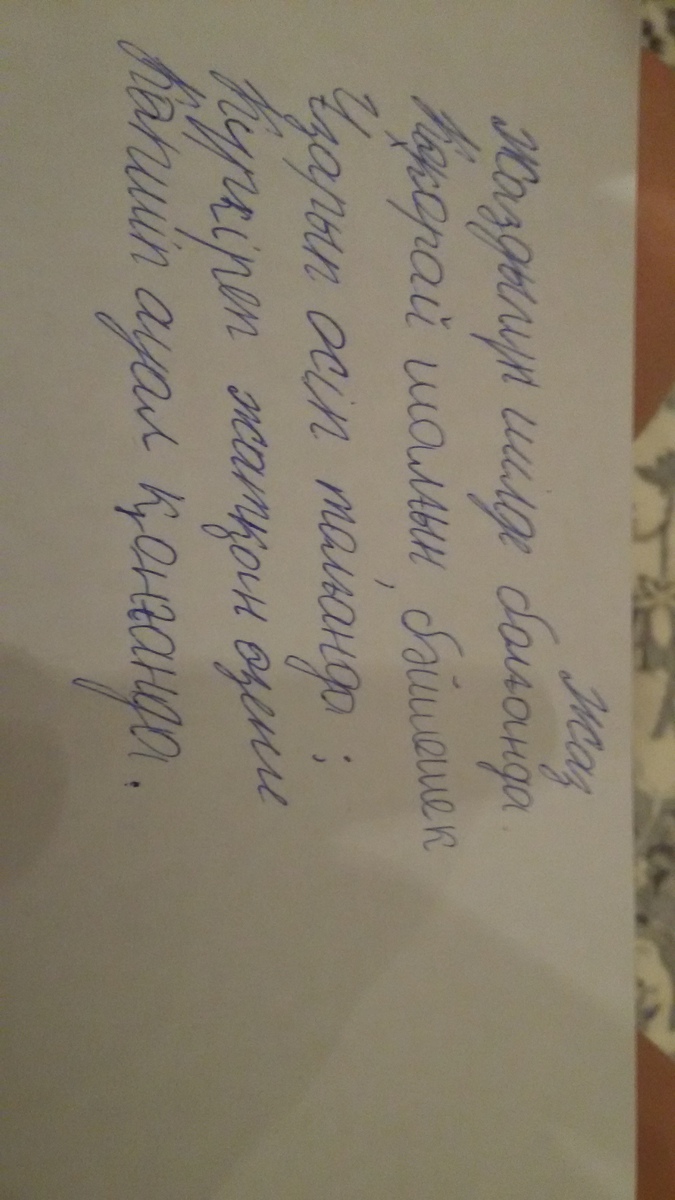 Жаз
Жаздыгүн шилде болғанда.
Көкорай шалғын, бәйшешек
Ұзарып өсіп толғанда;
Күркіреп жатқан өзенге
Көшіп ауыл қонғанда.